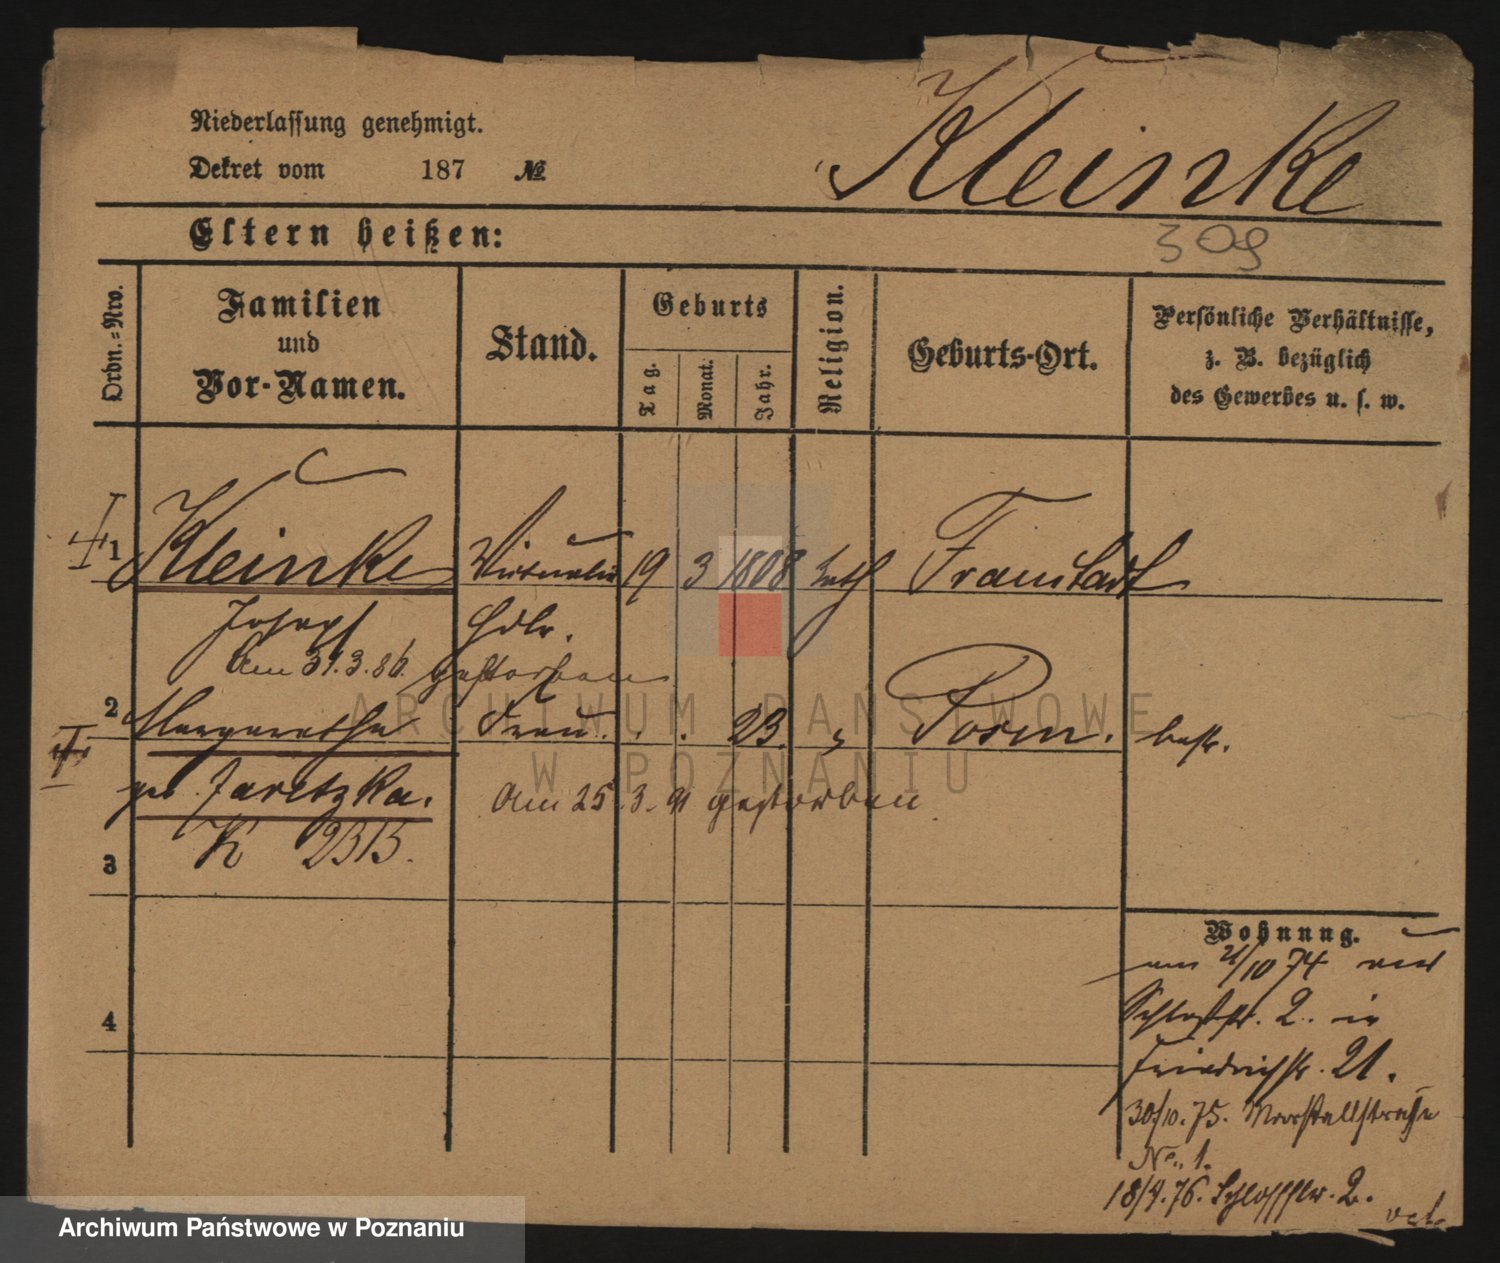 Kleinke
Niederlassung genehmigt.
Dekret vom 187 №
Eltern heißen:
309
Ordn.-Nro.
Familien und Vor-Namen.
Stand.
Geburts
Tag.
Monat.
Jahr.
Religion.
Geburts-Ort.
Persönliche Verhältnisse,
z. B. bezüglich
des Gewerbes u. s. w.
1 Kleinke Victualien 19 3 1808 kath Fraustadt
Joseph Hdlr.
Am 31.3.86. gestorben
2 Margarethe Frau. . . 23. " Posen.
geb. Jaretzka. Am 25.3.91 gestorben
K 2313.
3
4
Wohnung.
am 2/10 74 aus
Schloßstr. 2. in
Friedrichstr. 21.
30/10.75. Marstallstraße
No. 1.
18/4.76. Schloßstr. 2.
ARCHIWUM PAŃSTWOWE
W POZNANIU
Archiwum Państwowe w Poznaniu